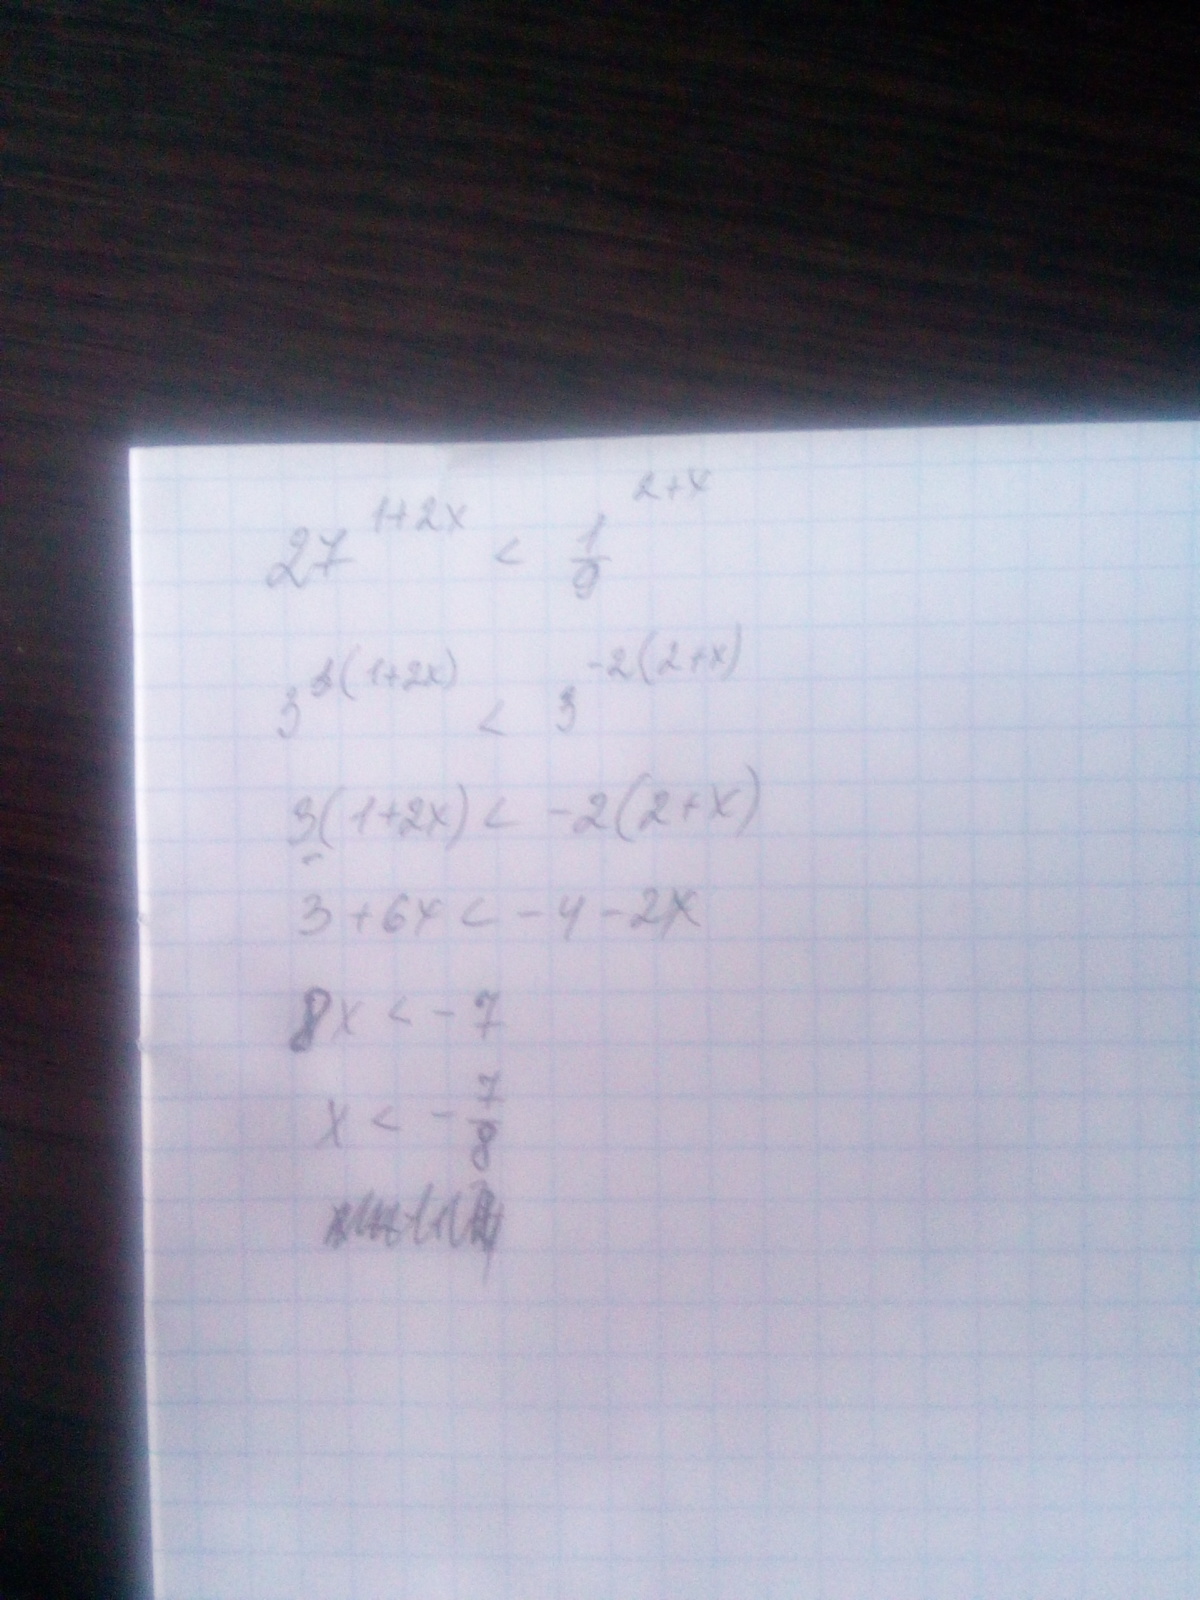 27^{1+2x} < \frac{1}{9}^{2+x}
3^{3(1+2x)} < 3^{-2(2+x)}
3(1+2x) < -2(2+x)
3+6x < -4-2x
8x < -7
x < -\frac{7}{8}